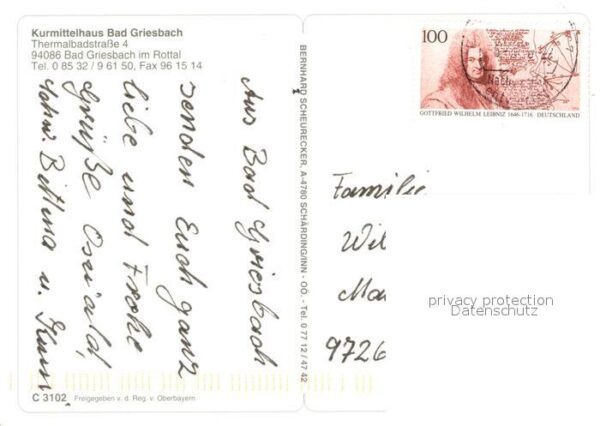 Kurmittelhaus Bad Griesbach
Thermalbadstraße 4
94086 Bad Griesbach im Rottal
Tel. 0 85 32 / 9 61 50, Fax 96 15 14
Aus Bad Griesbach
senden Euch ganz
liebe und Frohe
Grüße Oswald,
Bettina u.
C 3102 Freigegeben v. d. Reg. v. Oberbayern
BERNHARD SCHEURECKER, A-4780 SCHÄRDING/INN - OÖ. - Tel. 0 77 12 / 47 42
100
GOTTFRIED WILHELM LEIBNIZ 1646-1716 DEUTSCHLAND
Familie
Wil
Ma
9726
privacy protection
Datenschutz